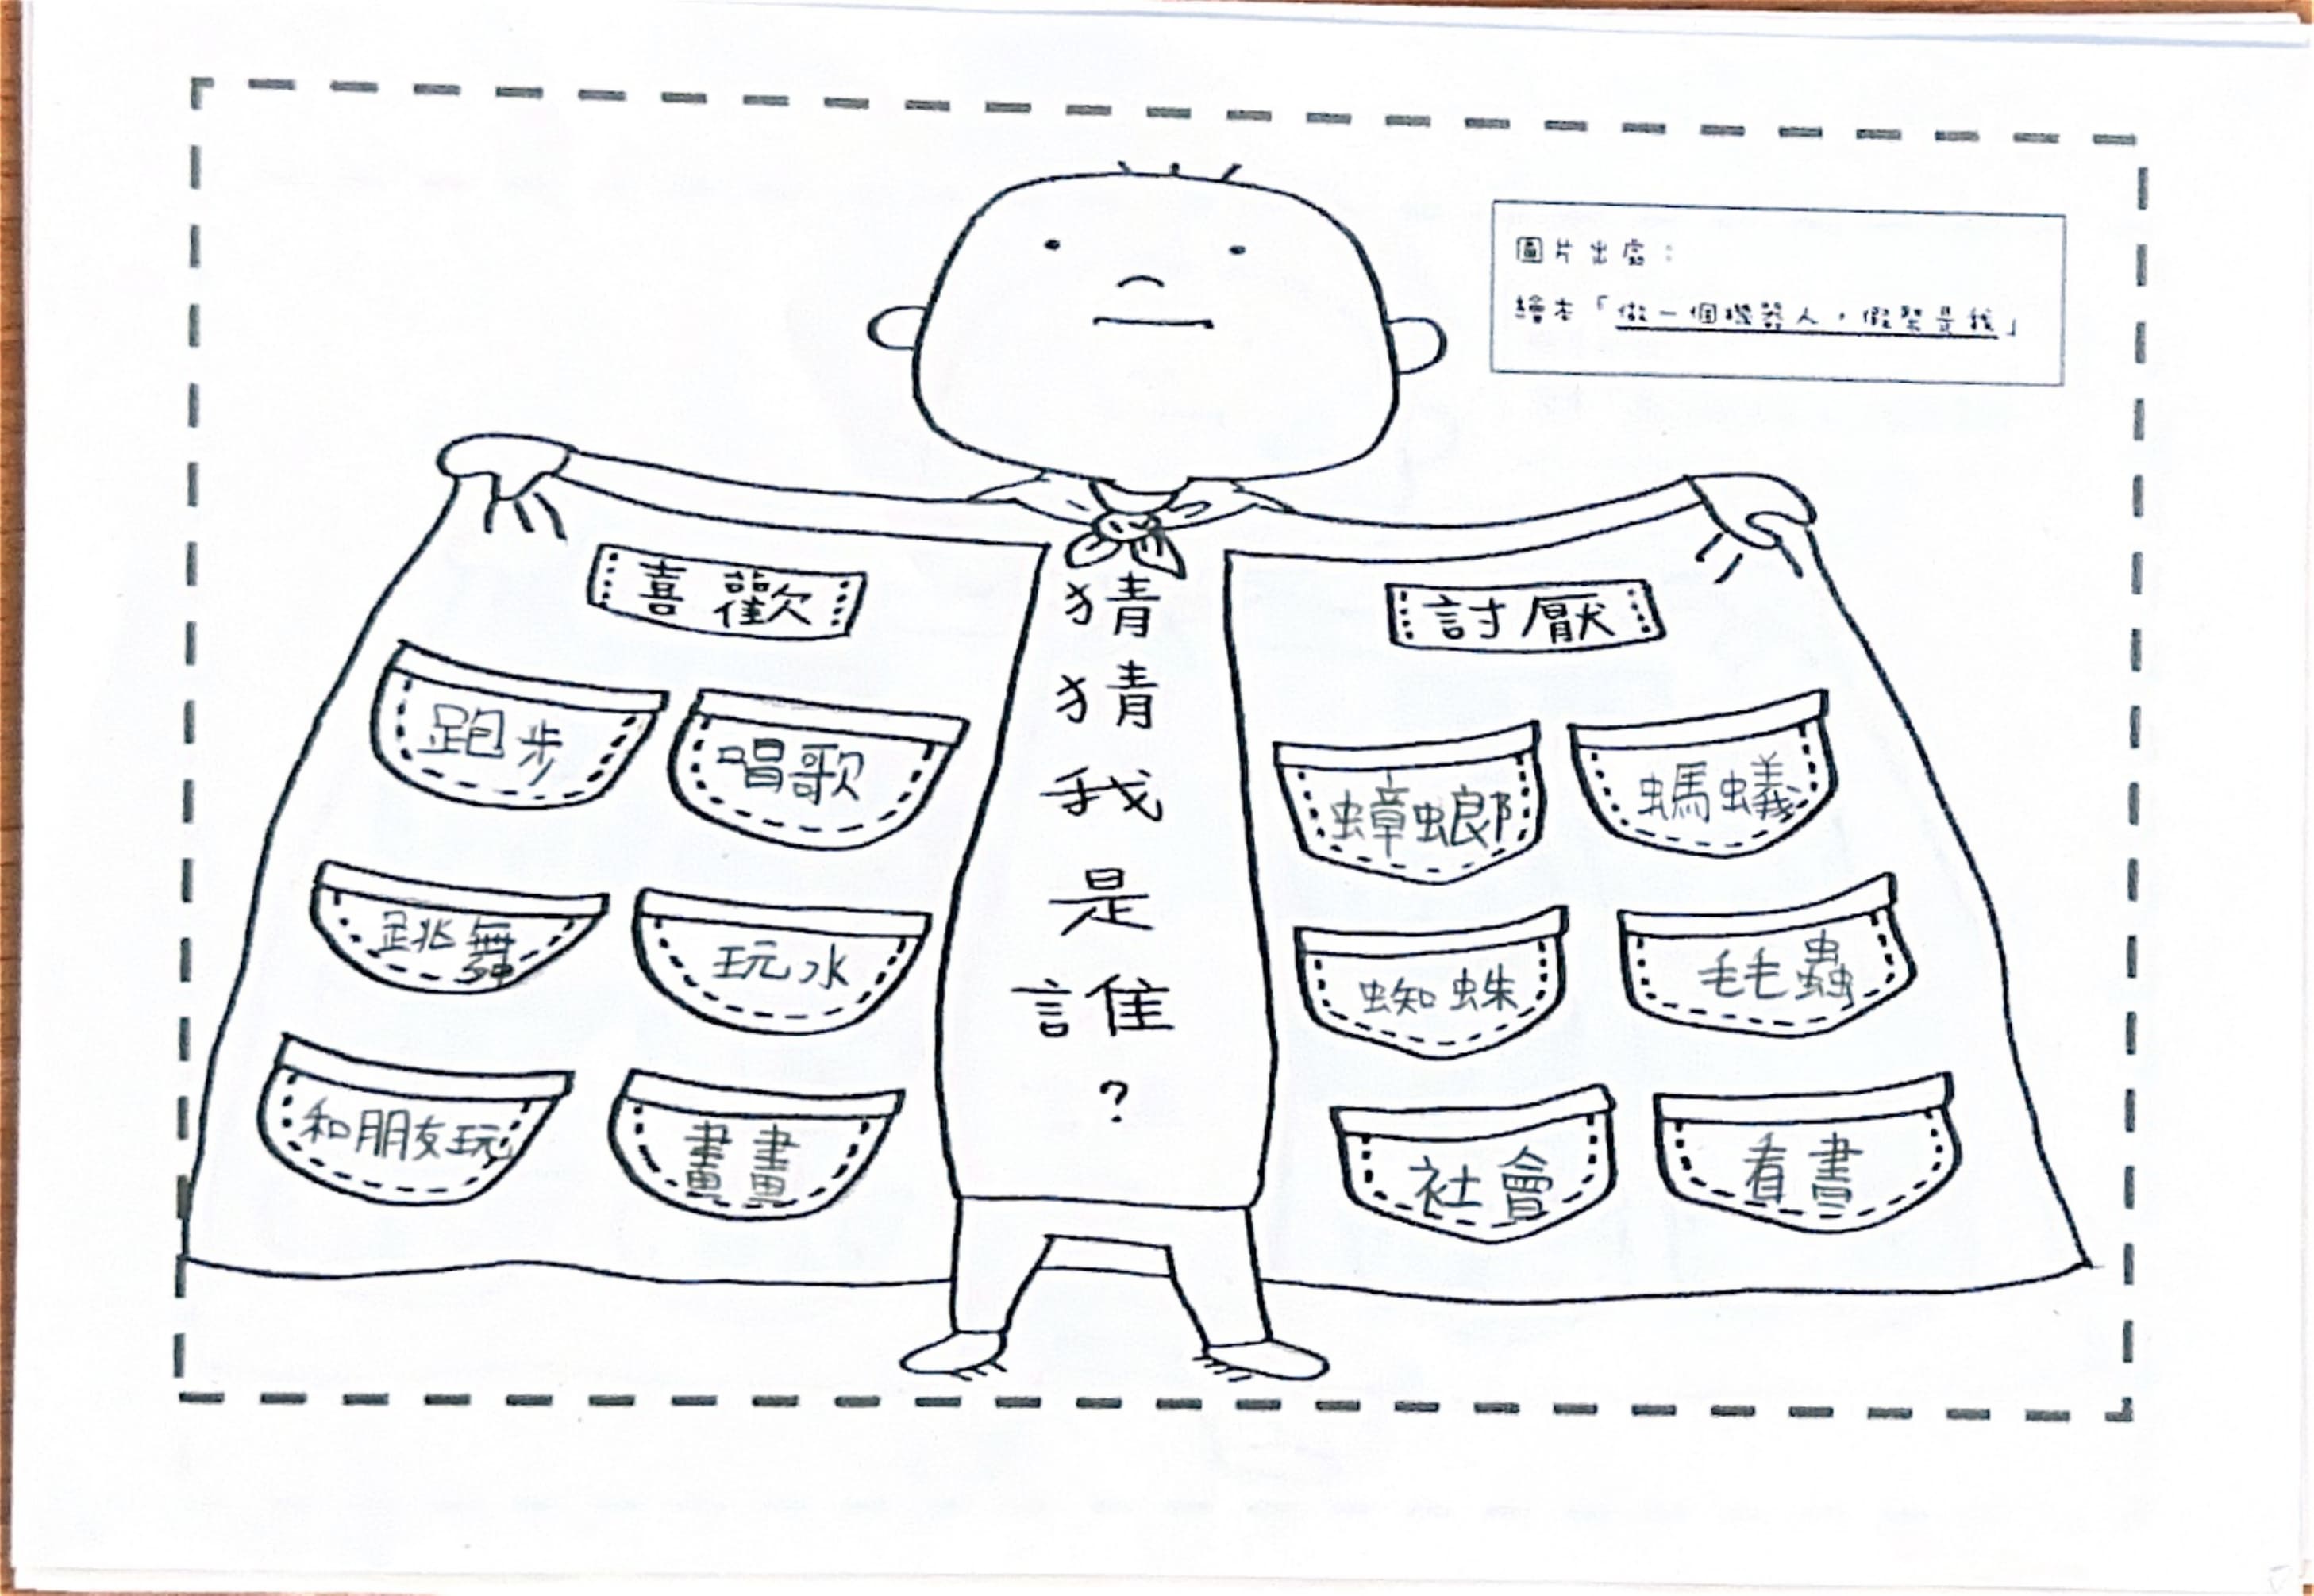 圖片出處：
繪本「做一個機器人，假裝是我」
猜猜我是誰？
喜歡
跑步
唱歌
跳舞
玩水
和朋友玩
畫畫
討厭
蟑螂
螞蟻
蜘蛛
毛毛蟲
社會
看書